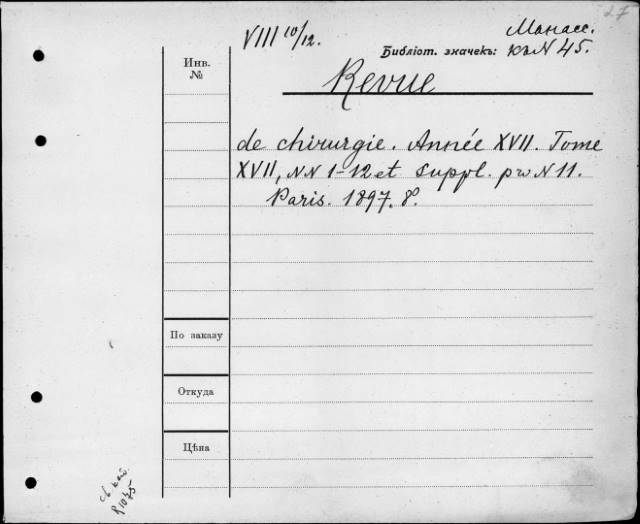 27
VIII 10/12.
Манасс.
Библіот. значекъ: къ N 45.
Инв.
№
Revue
de chirurgie. Année XVII. Tome
XVII, NN 1-12 et suppl. pro N 11.
Paris. 1897. 8.
По заказу
Откуда
Цѣна
св. кат.